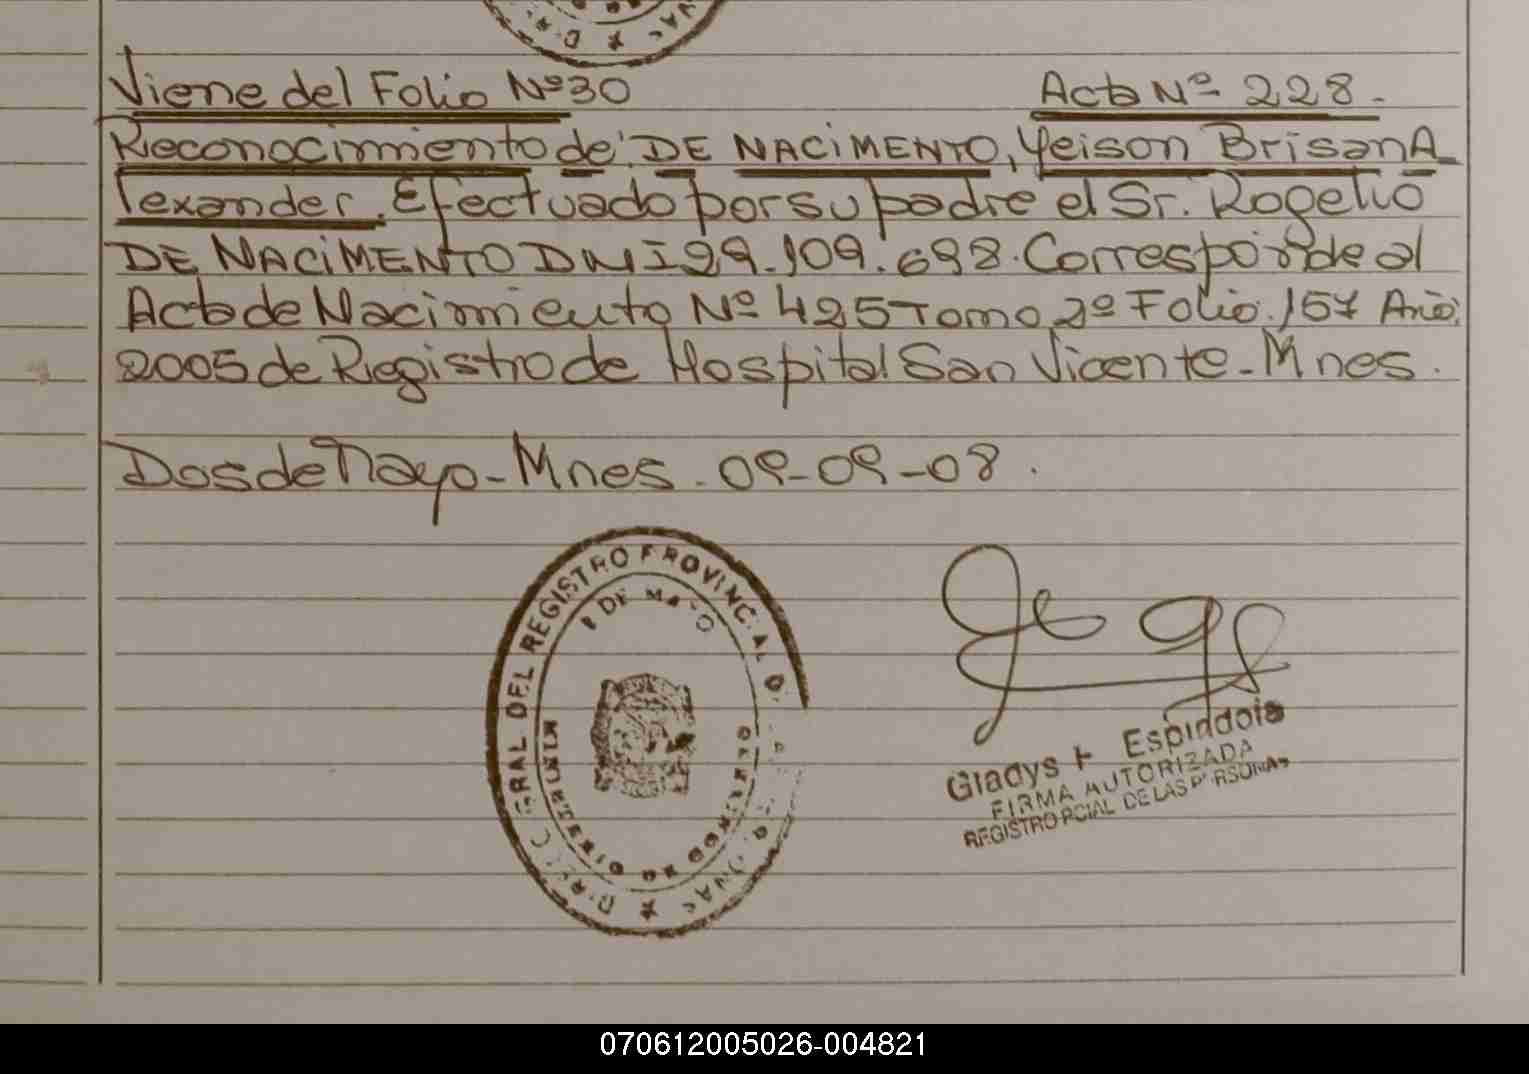 Viene del Folio Nº 30 Acta Nº 228.
Reconocimiento de: DE NACiMENTO, Yeison Brisan A
lexander. Efectuado por su padre el Sr. Rogelio
DE NACiMENTO DNI 29.109.698. Corresponde al
Acta de Nacimiento Nº 425 Tomo 2º Folio. 157 Año:
2005 de Registro de Hospital San Vicente - Mnes.
Dos de Mayo - Mnes. 09-09-08.
RAL DEL REGISTRO PROVINCIAL D
DE MAYO
Gladys Espindola
FIRMA AUTORIZADA
REGISTRO PCIAL DE LAS PERSONAS
070612005026-004821